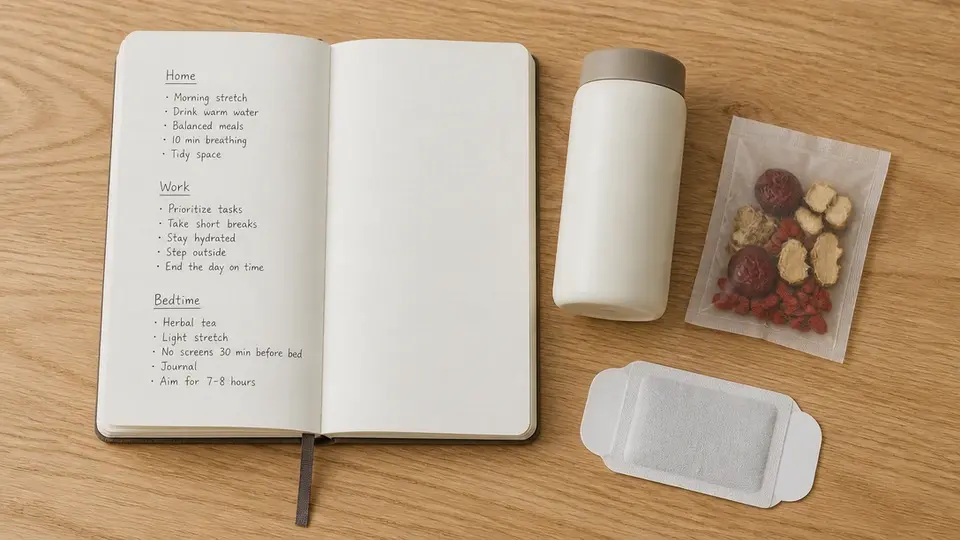 Home
· Morning stretch
· Drink warm water
· Balanced meals
· 10 min breathing
· Tidy space
Work
· Prioritize tasks
· Take short breaks
· Stay hydrated
· Step outside
· End the day on time
Bedtime
· Herbal tea
· Light stretch
· No screens 30 min before bed
· Journal
· Aim for 7-8 hours